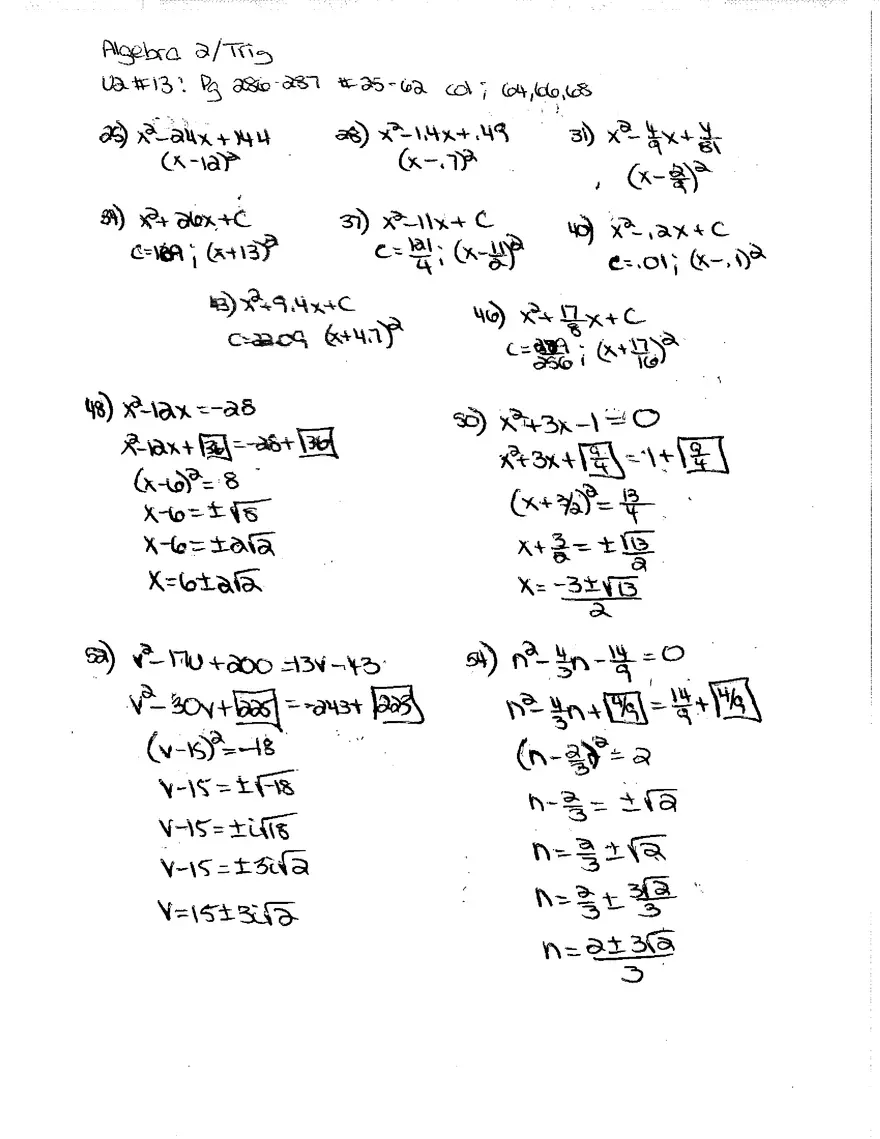 Algebra 2/Trig
U2 #13: Pg 286-287 #25-62 col; 64,66,68
25) x²-24x+144
(x-12)²
28) x²-1.4x+.49
(x-.7)²
31) x²-4/9x+4/81
(x-2/9)²
34) x²+26x+C
C=169; (x+13)²
37) x²-11x+C
C=121/4; (x-11/2)²
40) x²-.2x+C
C=.01; (x-.1)²
43) x²+9.4x+C
C=22.09 (x+4.7)²
46) x²+17/8x+C
C=289/256; (x+17/16)²
48) x²-12x=-28
x²-12x+36=-28+36
(x-6)²=8
x-6=±√8
x-6=±2√2
x=6±2√2
50) x²+3x-1=0
x²+3x+9/4=1+9/4
(x+3/2)²=13/4
x+3/2=±√13/2
x=-3±√13/2
52) v²-17v+200=13v-43
v²-30v+225=-243+225
(v-15)²=-18
v-15=±√-18
v-15=±i√18
v-15=±3i√2
v=15±3i√2
54) n²-4/3n-14/9=0
n²-4/3n+4/9=14/9+4/9
(n-2/3)²=2
n-2/3=±√2
n=2/3±√2
n=2/3±3√2/3
n=2±3√2/3